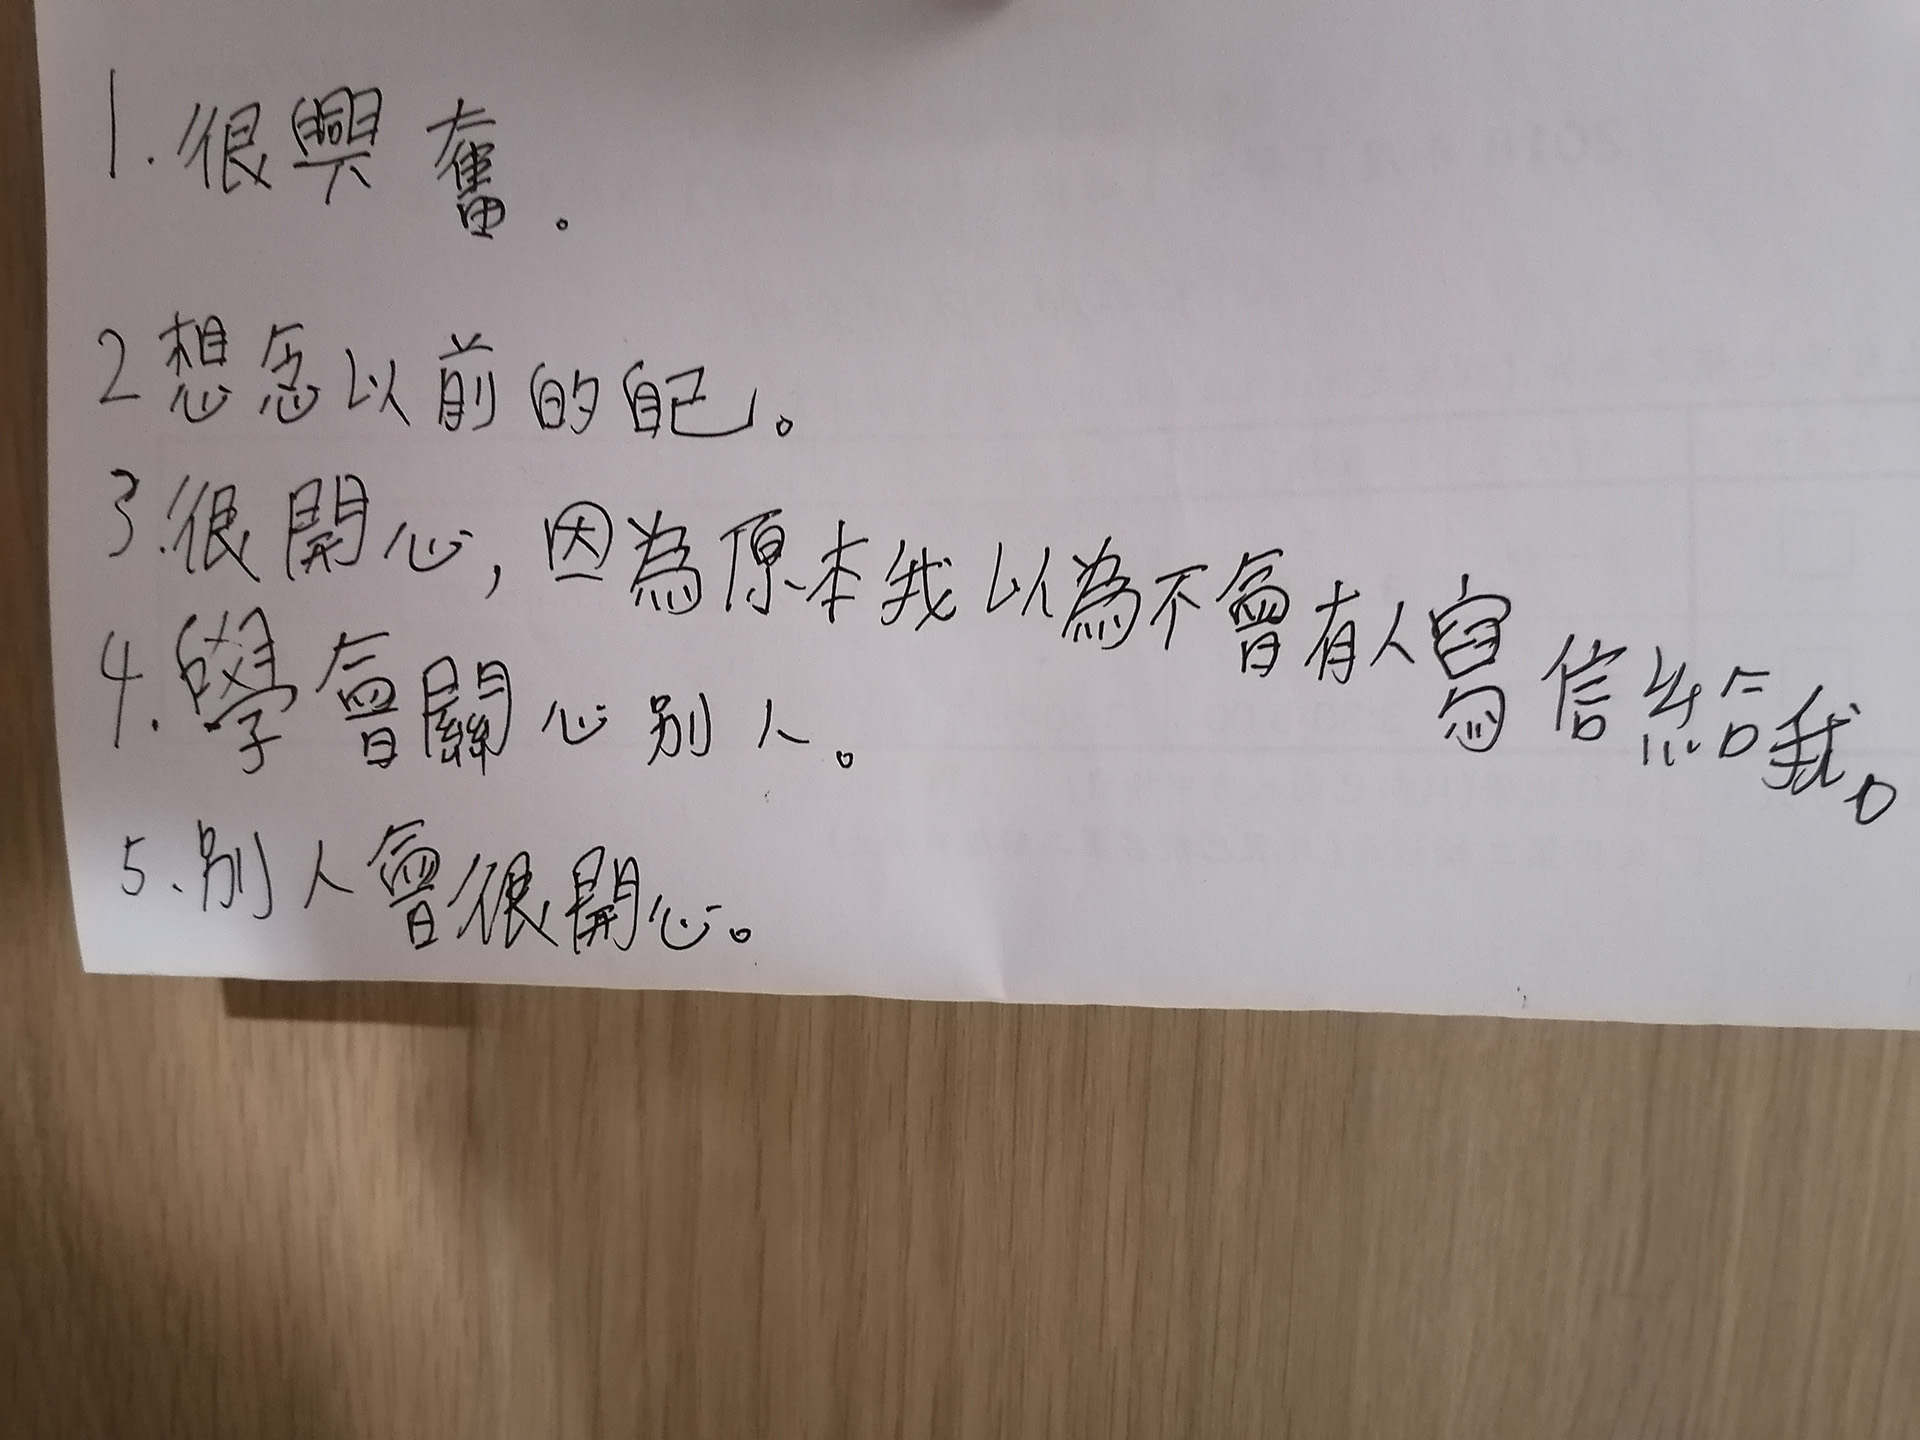 1. 很興奮。
2 想念以前的自己。
3. 很開心,因為原本我以為不會有人寫信給我。
4. 學會關心別人。
5、別人會很開心。